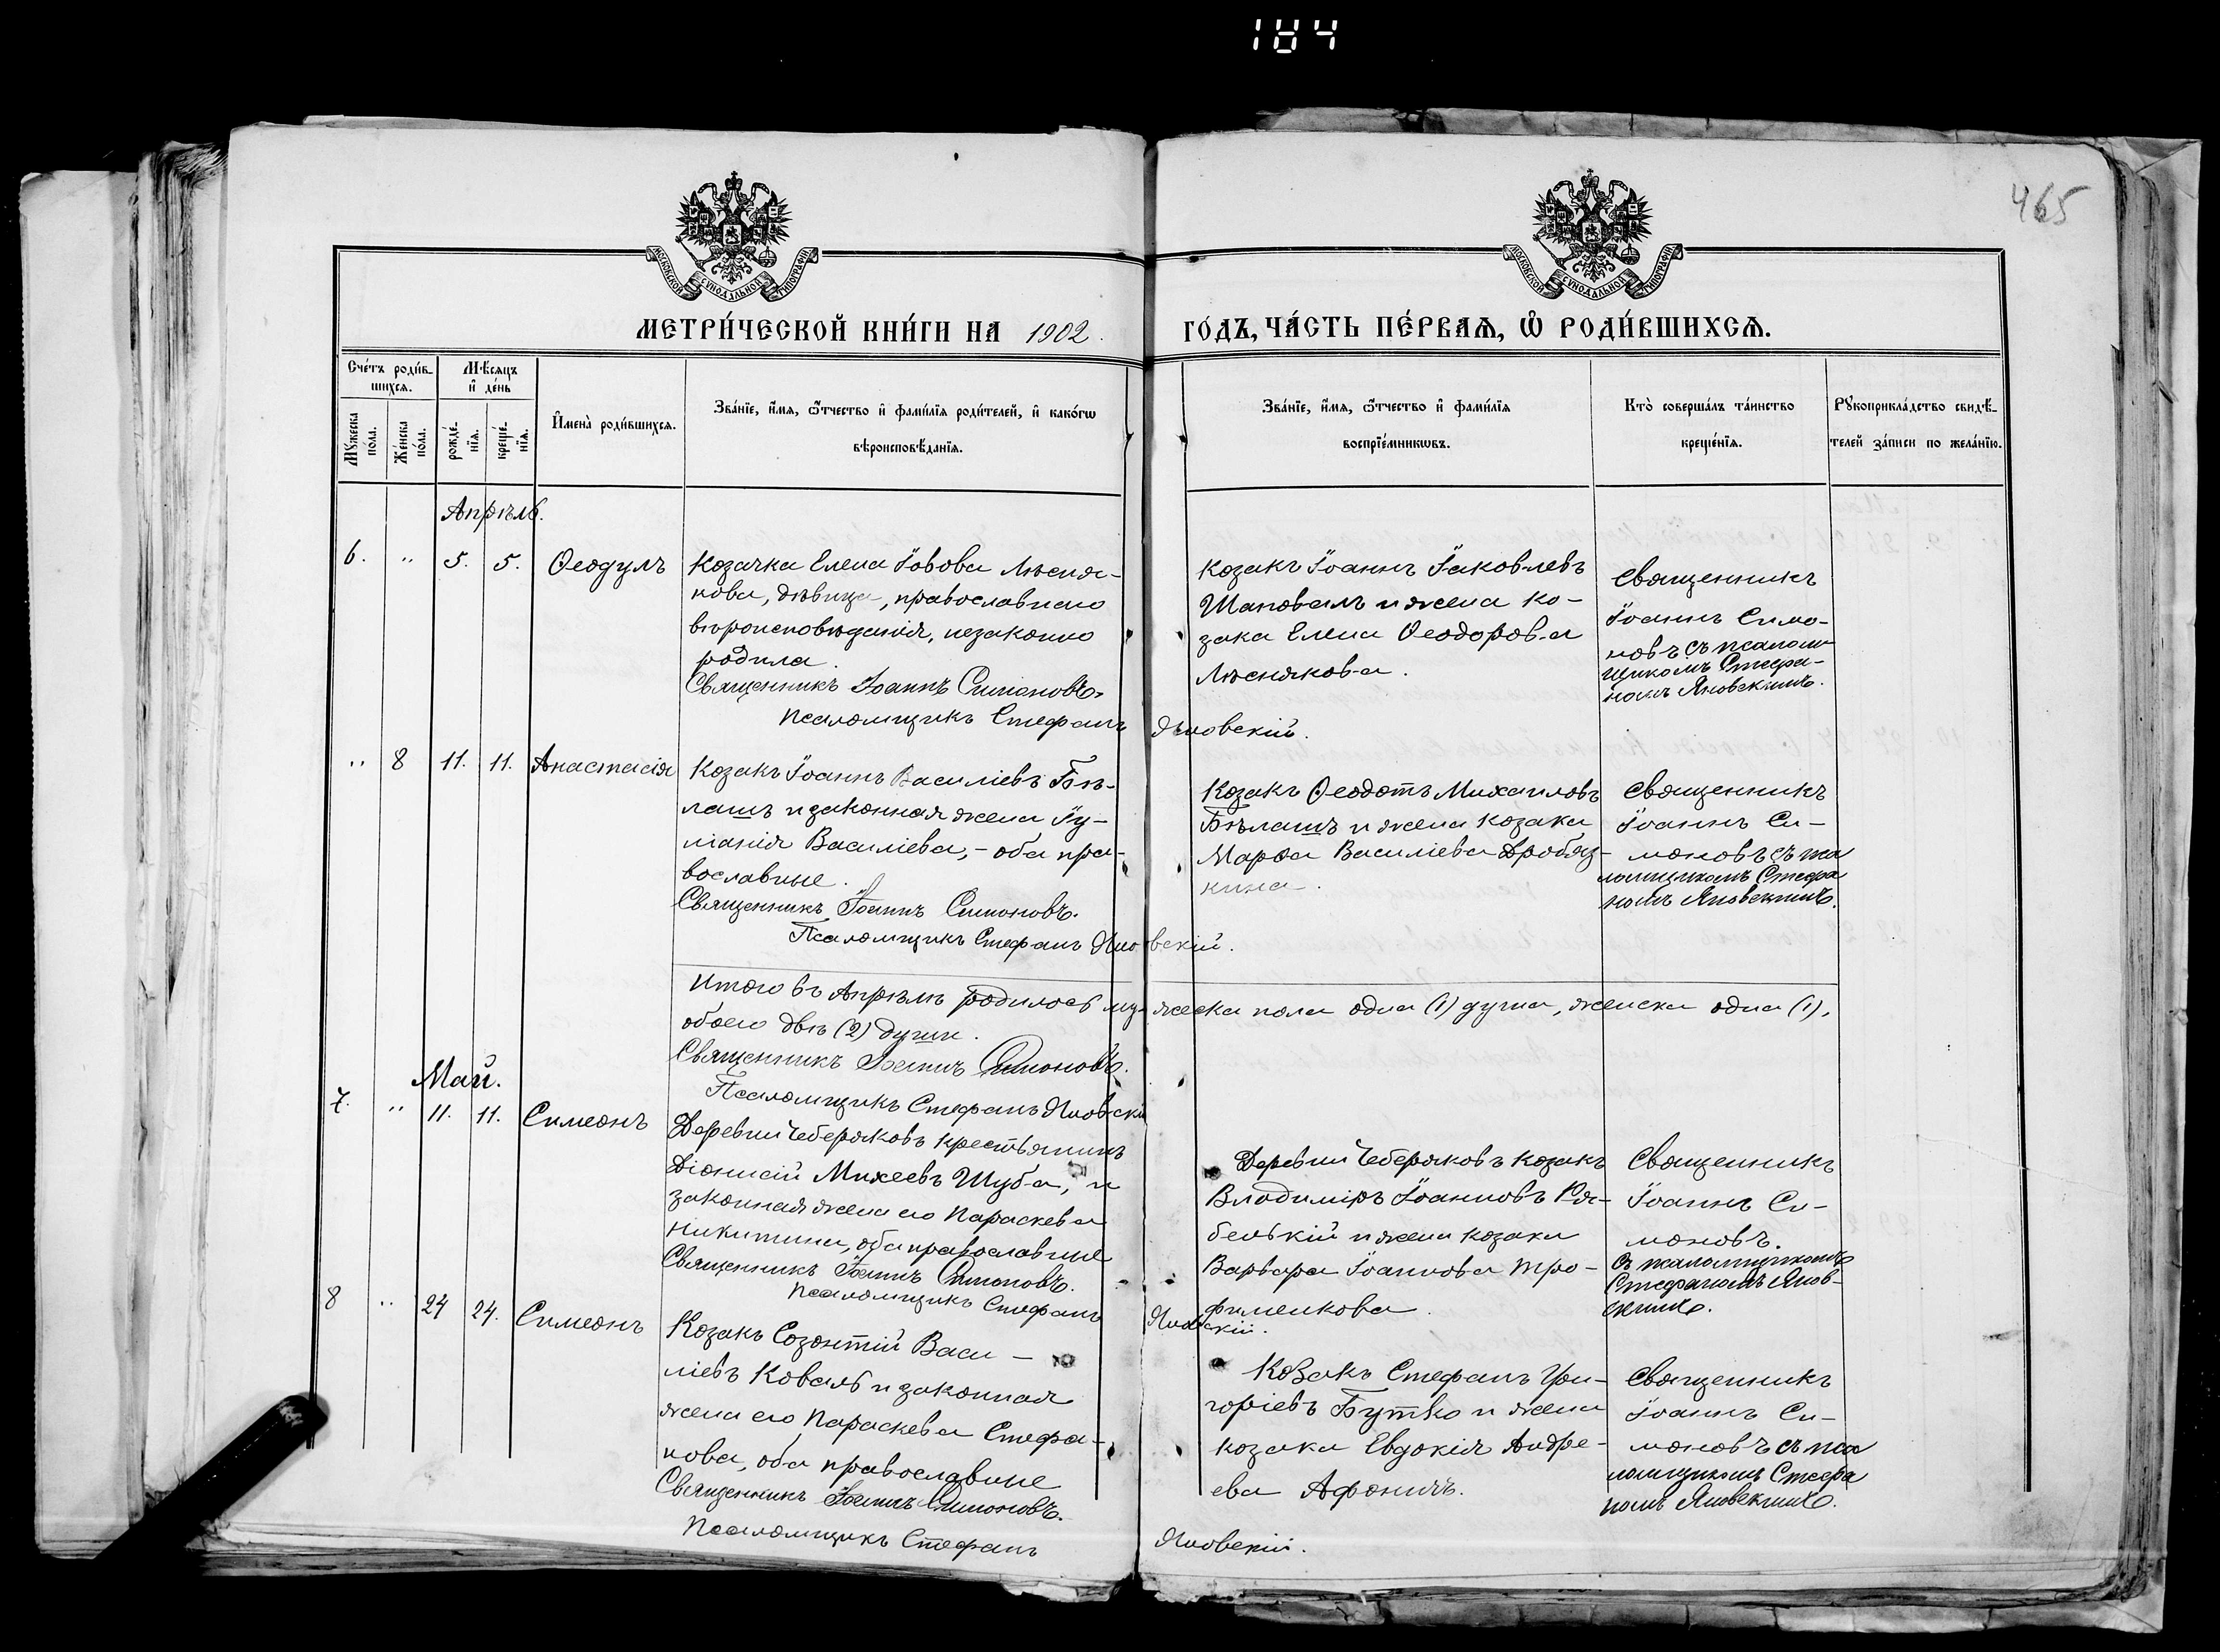 184
465
МОСКОВСКОЙ СѴНОДАЛЬНОЙ ТИПОГРАФІИ
МОСКОВСКОЙ СѴНОДАЛЬНОЙ ТИПОГРАФІИ
МЕТРИ́ЧЕСКОЙ КНИ́ГИ НА 1902. ГО́ДЪ, ЧА́СТЬ ПЕ́РВАѦ, Ѡ҆ РОДИ́ВШИХСѦ.
Сче́тъ роди́в-
шихся.
Мѣ́сяцъ
и҆ де́нь
Мꙋ́жеска по́ла.
Же́нска по́ла.
рожде́-
нїѧ.
креще́-
нїѧ.
И҆мена̀ роди́вшихсѧ.
Зва́нїе, и҆́мѧ, ѻ҆́тчество и҆ фами́лїѧ роди́телей, и҆ како́гѡ
вѣроисповѣ́данїѧ.
Зва́нїе, и҆́мѧ, ѻ҆́тчество и҆ фами́лїѧ
воспрїе́мникѡвъ.
Кто̀ соверша́лъ та́инство
креще́нїѧ.
Рꙋкоприкла́дство свидѣ́-
телей за́писи по жела́нїю.
Апрѣль.
6. " 5. 5. Ѳеодулъ
Козачка Елена Іовова Лѣсня-
кова, дѣвица, православнаго
вѣроисповѣданія, незаконно
родила.
Священникъ Іоаннъ Симоновъ.
Псаломщикъ Стефанъ Яновскій.
Козакъ Іоаннъ Іаковлевъ
Шаповалъ и жена ко-
зака Елена Ѳеодорова
Лѣснякова.
Священникъ
Іоаннъ Симо-
новъ съ псалом-
щикомъ Стефа-
номъ Яновскимъ.
" 8 11. 11. Анастасія
Козакъ Іоаннъ Василіевъ Бѣ-
лашъ и законная жена Іу-
ліанія Василіева, - оба пра-
вославные.
Священникъ Іоаннъ Симоновъ.
Псаломщикъ Стефанъ Яновскій.
Козакъ Ѳеодотъ Михаиловъ
Бѣлашъ и жена козака
Марѳа Василіева Дробяз-
кина.
Священникъ
Іоаннъ Си-
моновъ съ пса
ломщикомъ Стефа
номъ Яновскимъ.
Итого въ Апрѣлѣ родилось мужеска пола одна (1) душа, женска одна (1),
обоего двѣ (2) души.
Священникъ Іоаннъ Симоновъ.
Псаломщикъ Стефанъ Яновскій
Май.
7. " 11. 11. Симеонъ
Деревни Чеберяковъ крестьянинъ
Діонисій Михеевъ Шуба, и
законная жена его Параскева
Никитина, оба православные
Священникъ Іоаннъ Симоновъ.
Псаломщикъ Стефанъ Яновскій.
Деревни Чеберяковъ козакъ
Владиміръ Іоанновъ Ря-
бенькій и жена козака
Варвара Іоаннова Тро-
фименкова.
Священникъ
Іоаннъ Си-
моновъ.
съ псаломщикомъ
Стефаномъ Янов-
скимъ.
8 " 24 24. Симеонъ
Козакъ Созонтій Васи-
ліевъ Коваль и законная
жена его Параскева Стефа-
нова, оба православные
Священникъ Іоаннъ Симоновъ.
Псаломщикъ Стефанъ Яновскій.
Козакъ Стефанъ Гри-
горіевъ Бутко и жена
козака Евдокія Андре-
ева Афоничъ.
Священникъ
Іоаннъ Си-
моновъ съ пса
ломщикомъ Стефа
номъ Яновскимъ.